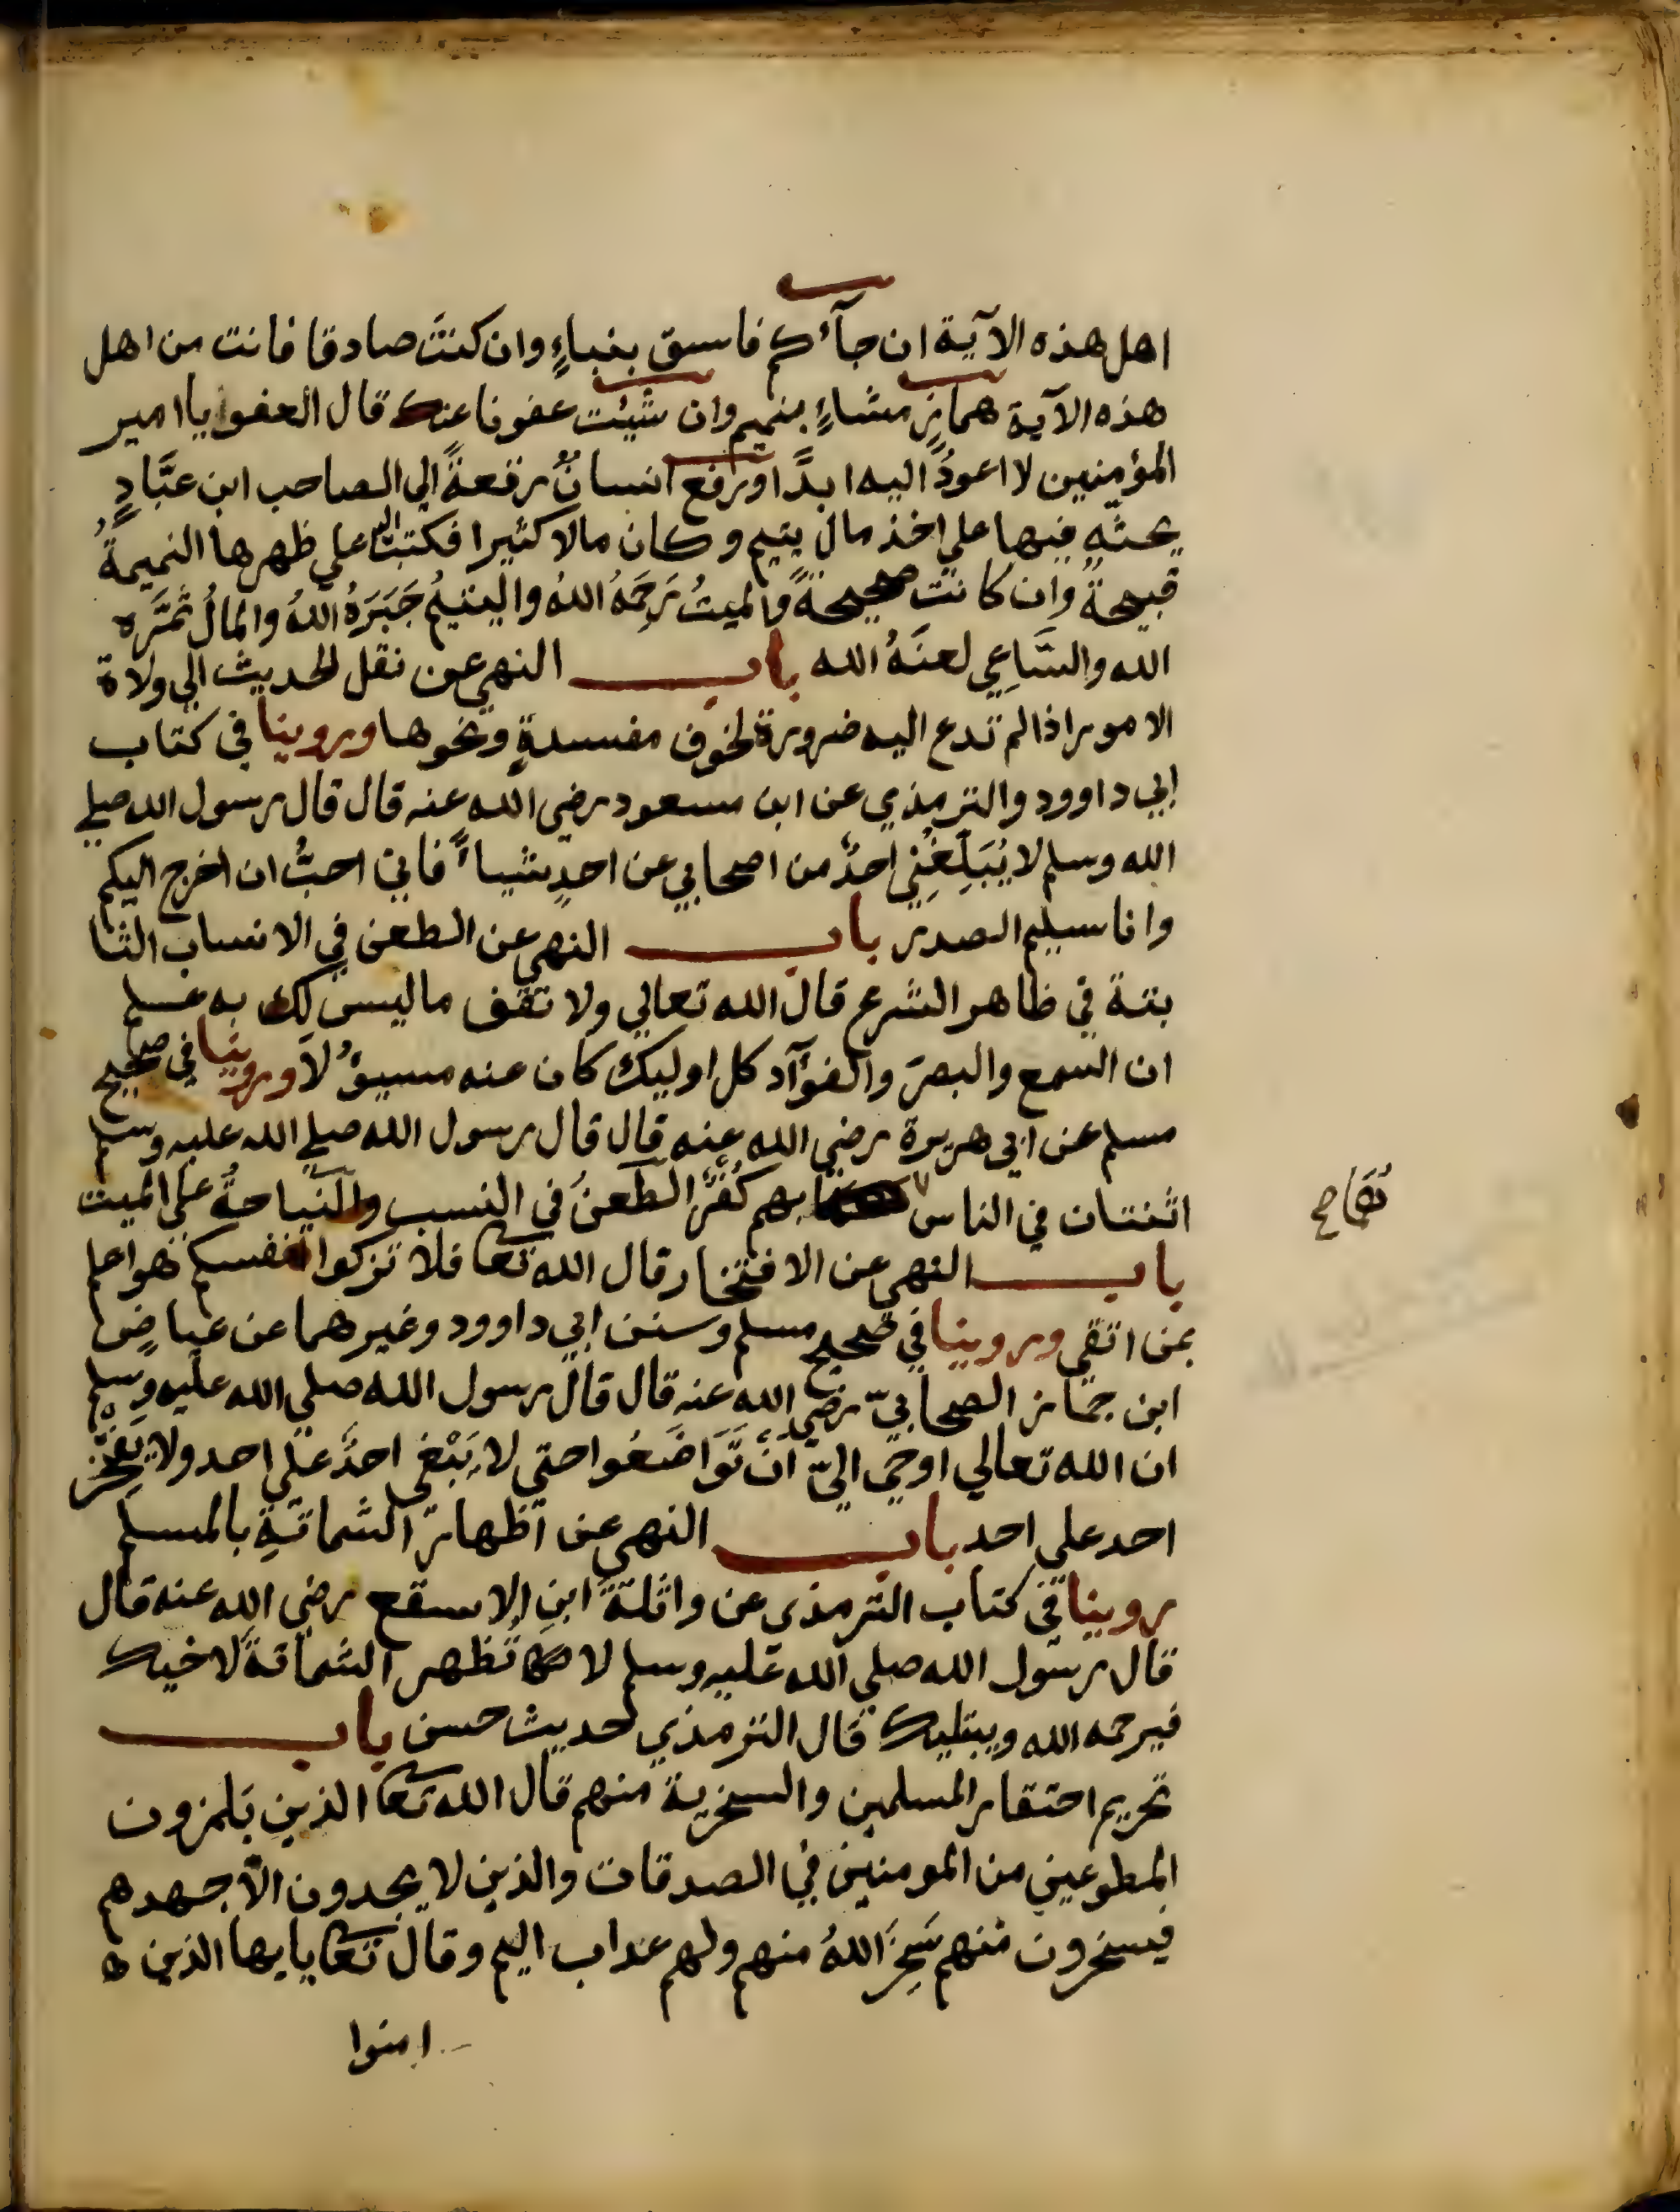 اهل هذه الآية ان جآئكم فاسق بنباءٍ وان كنتَ صادقا فانت من اهل
هذه الآية همازٍ مشاءٍ بنميم وان شيئت عفونا عنك قال العفو يا امير
المؤمنين لا اعودُ اليه ابدًا ورفع انسانٌ رقعةً الي الصاحب ابن عبَّادٍ
يحثّه فيها علي اخذ مال يتيم وكان مالا كثيرا فكتب اليه علي ظهرها النميمةُ
قبيحةٌ وان كانت صحيحةً والميتُ رَحِمَهُ اللهُ واليتيمُ جَبَرَهُ اللهُ والمالُ ثمَّره
الله والسَّاعِي لعنَهُ الله باب النهي عن نقل الحديث الي ولاة
الامور اذا لم تدع اليه ضرورة لخوف مفسدةٍ ونحوها وروينا في كتاب
ابي داوود والترمذي عن ابن مسعود رضي الله عنه قال قال رسول الله صلي
الله وسلم لا يُبَلِّغُنِي احدٌ من اصحابي عن احدٍ شياءً فاني احبُّ ان اخرج اليكم
وانا سليم الصدر باب النهي عن الطعن في الانساب الثا
بتة في ظاهر الشرع قال الله تعالي ولا تقف ما ليس لك به علم
ان السمع والبصر والفؤآد كل اوليك كان عنه مسيؤُلاً وروينا في صحيح
مسلم عن ابي هريرة رضي الله عنه قال قال رسول الله صلي الله عليه وسلم
اثنتان في الناس بهم كُفْرٌ الطعنُ في النسب والنياحةُ علي الميت
هُمَا صح
باب النهي عن الافتخار قال الله تعا فلا تزكوا انفسكم هو اعلم
بمن اتقي وروينا في صحيح مسلم وسنن ابي داوود وغيرهما عن عياضٍ
ابن حماز الصحابيّ رضي الله عنه قال قال رسول الله صلي الله عليه وسلم
ان الله تعالي اوحي اليّ انْ تَوَاضَعُوا حتي لا يَبْغي احدٌ علي احد ولا يَفْخَر
احد علي احد باب النهي عن اظهار الشماتةِ بالمسلم
روينا في كتاب الترمذي عن واثلة ابنِ الاسقع رضي الله عنه قال
قال رسول الله صلي الله عليه وسلم لا تُظهر الشماتةَ لاخيك
فيرحمه الله ويبتليك قال الترمذي حديث حسن باب
تحريم احتقار المسلمين والسخرية منهم قال الله تعا الذين يَلمزون
المطوعين من المومنين في الصدقات والذين لا يجدون الّا جهدهم
فيسخرون منهم سَخِرَ اللهُ منهم ولهم عداب اليم وقال تعا يايها الذين
امنوا